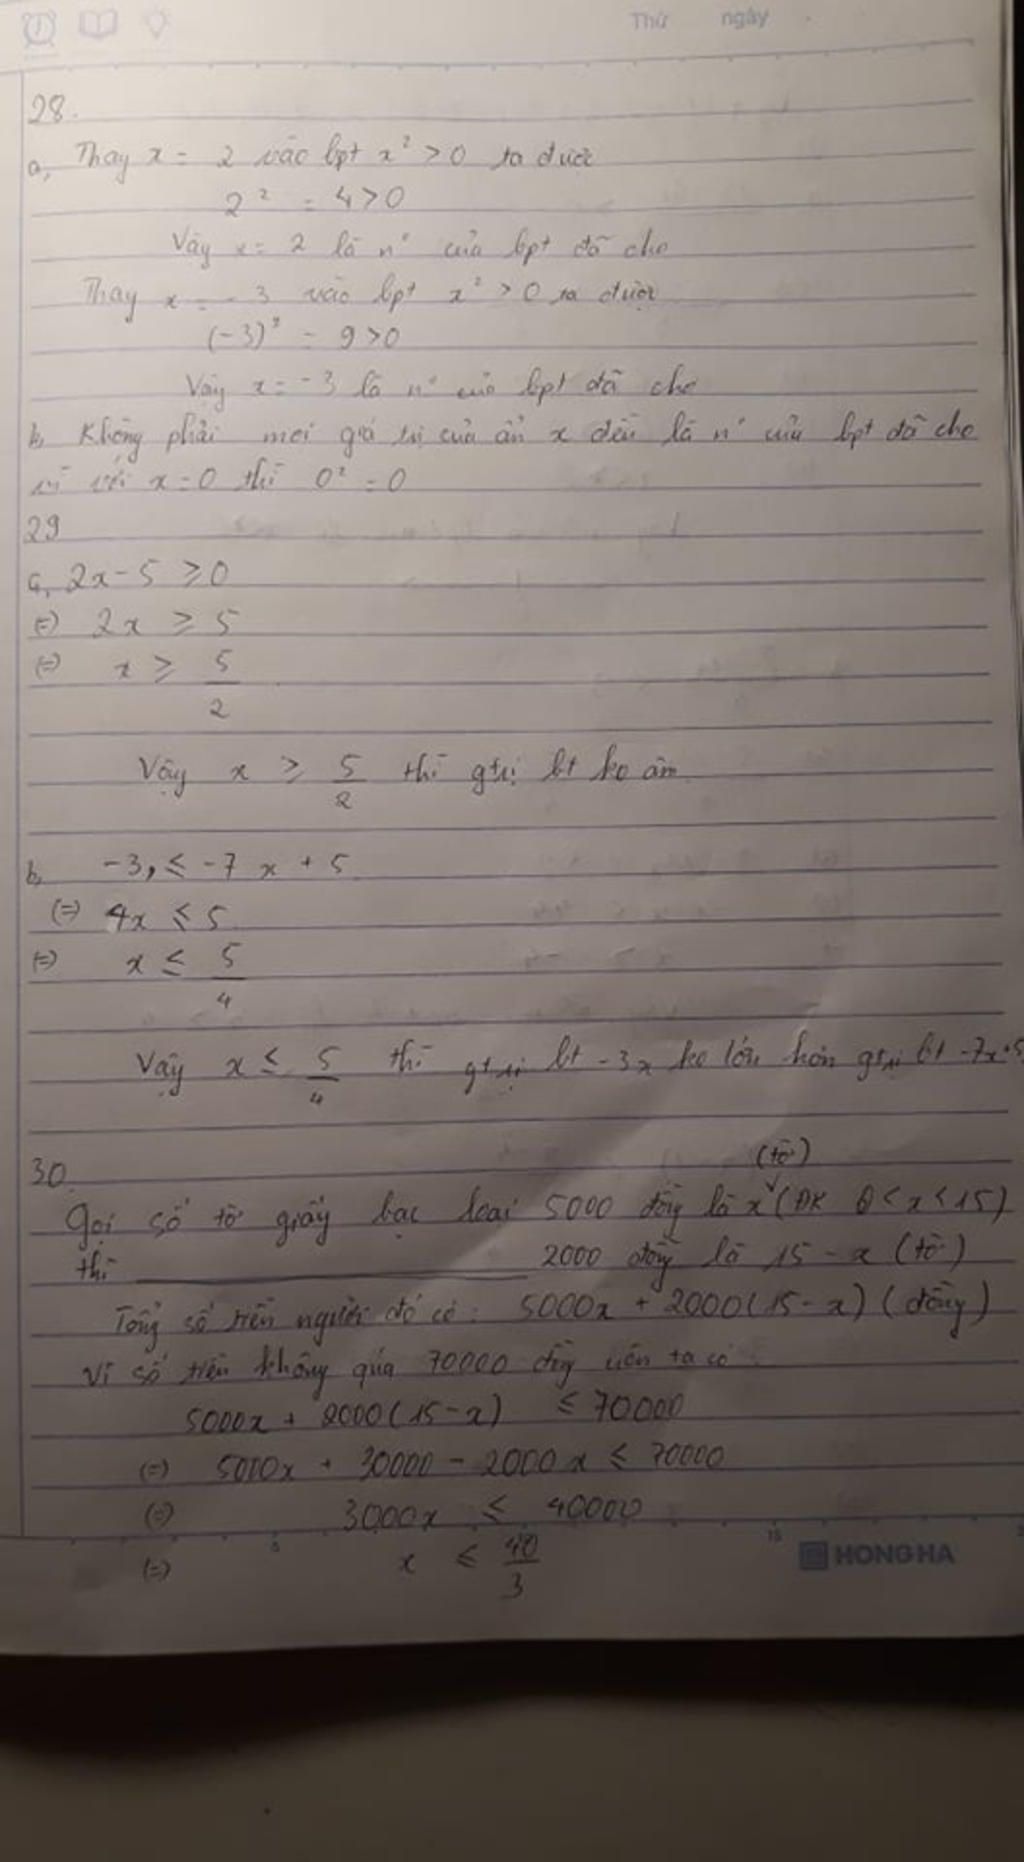 Thứ ngày
28.
a, Thay x = 2 vào bpt x² > 0 ta được
2² = 4 > 0
Vậy x = 2 là n⁰ của bpt đã cho
Thay x = -3 vào bpt x² > 0 ta được
(-3)² = 9 > 0
Vậy x = -3 là n⁰ của bpt đã cho
b, Không phải mọi giá trị của ẩn x đều là n⁰ của bpt đã cho
vì với x = 0 thì 0² = 0
29
a, 2x - 5 ≥ 0
(=) 2x ≥ 5
(=) x ≥ 5/2
Vậy x ≥ 5/2 thì gtrị bt ko âm
b, -3, ≤ -7 x + 5
(=) 4x ≤ 5
(=) x ≤ 5/4
Vậy x ≤ 5/4 thì gtrị bt -3x ko lớn hơn gtrị bt -7x+5
30.
(tờ)
Gọi số tờ giấy bạc loại 5000 đồng là x (ĐK 0 < x < 15)
thì 2000 đồng là 15 - x (tờ)
Tổng số tiền người đó có : 5000x + 2000(15-x) (đồng)
Vì số tiền không quá 70000 đồng nên ta có :
5000x + 2000(15-x) ≤ 70000
(=) 5000x + 30000 - 2000x ≤ 70000
(=) 3000x ≤ 40000
(=) x ≤ 40/3
5 15
HONG HA